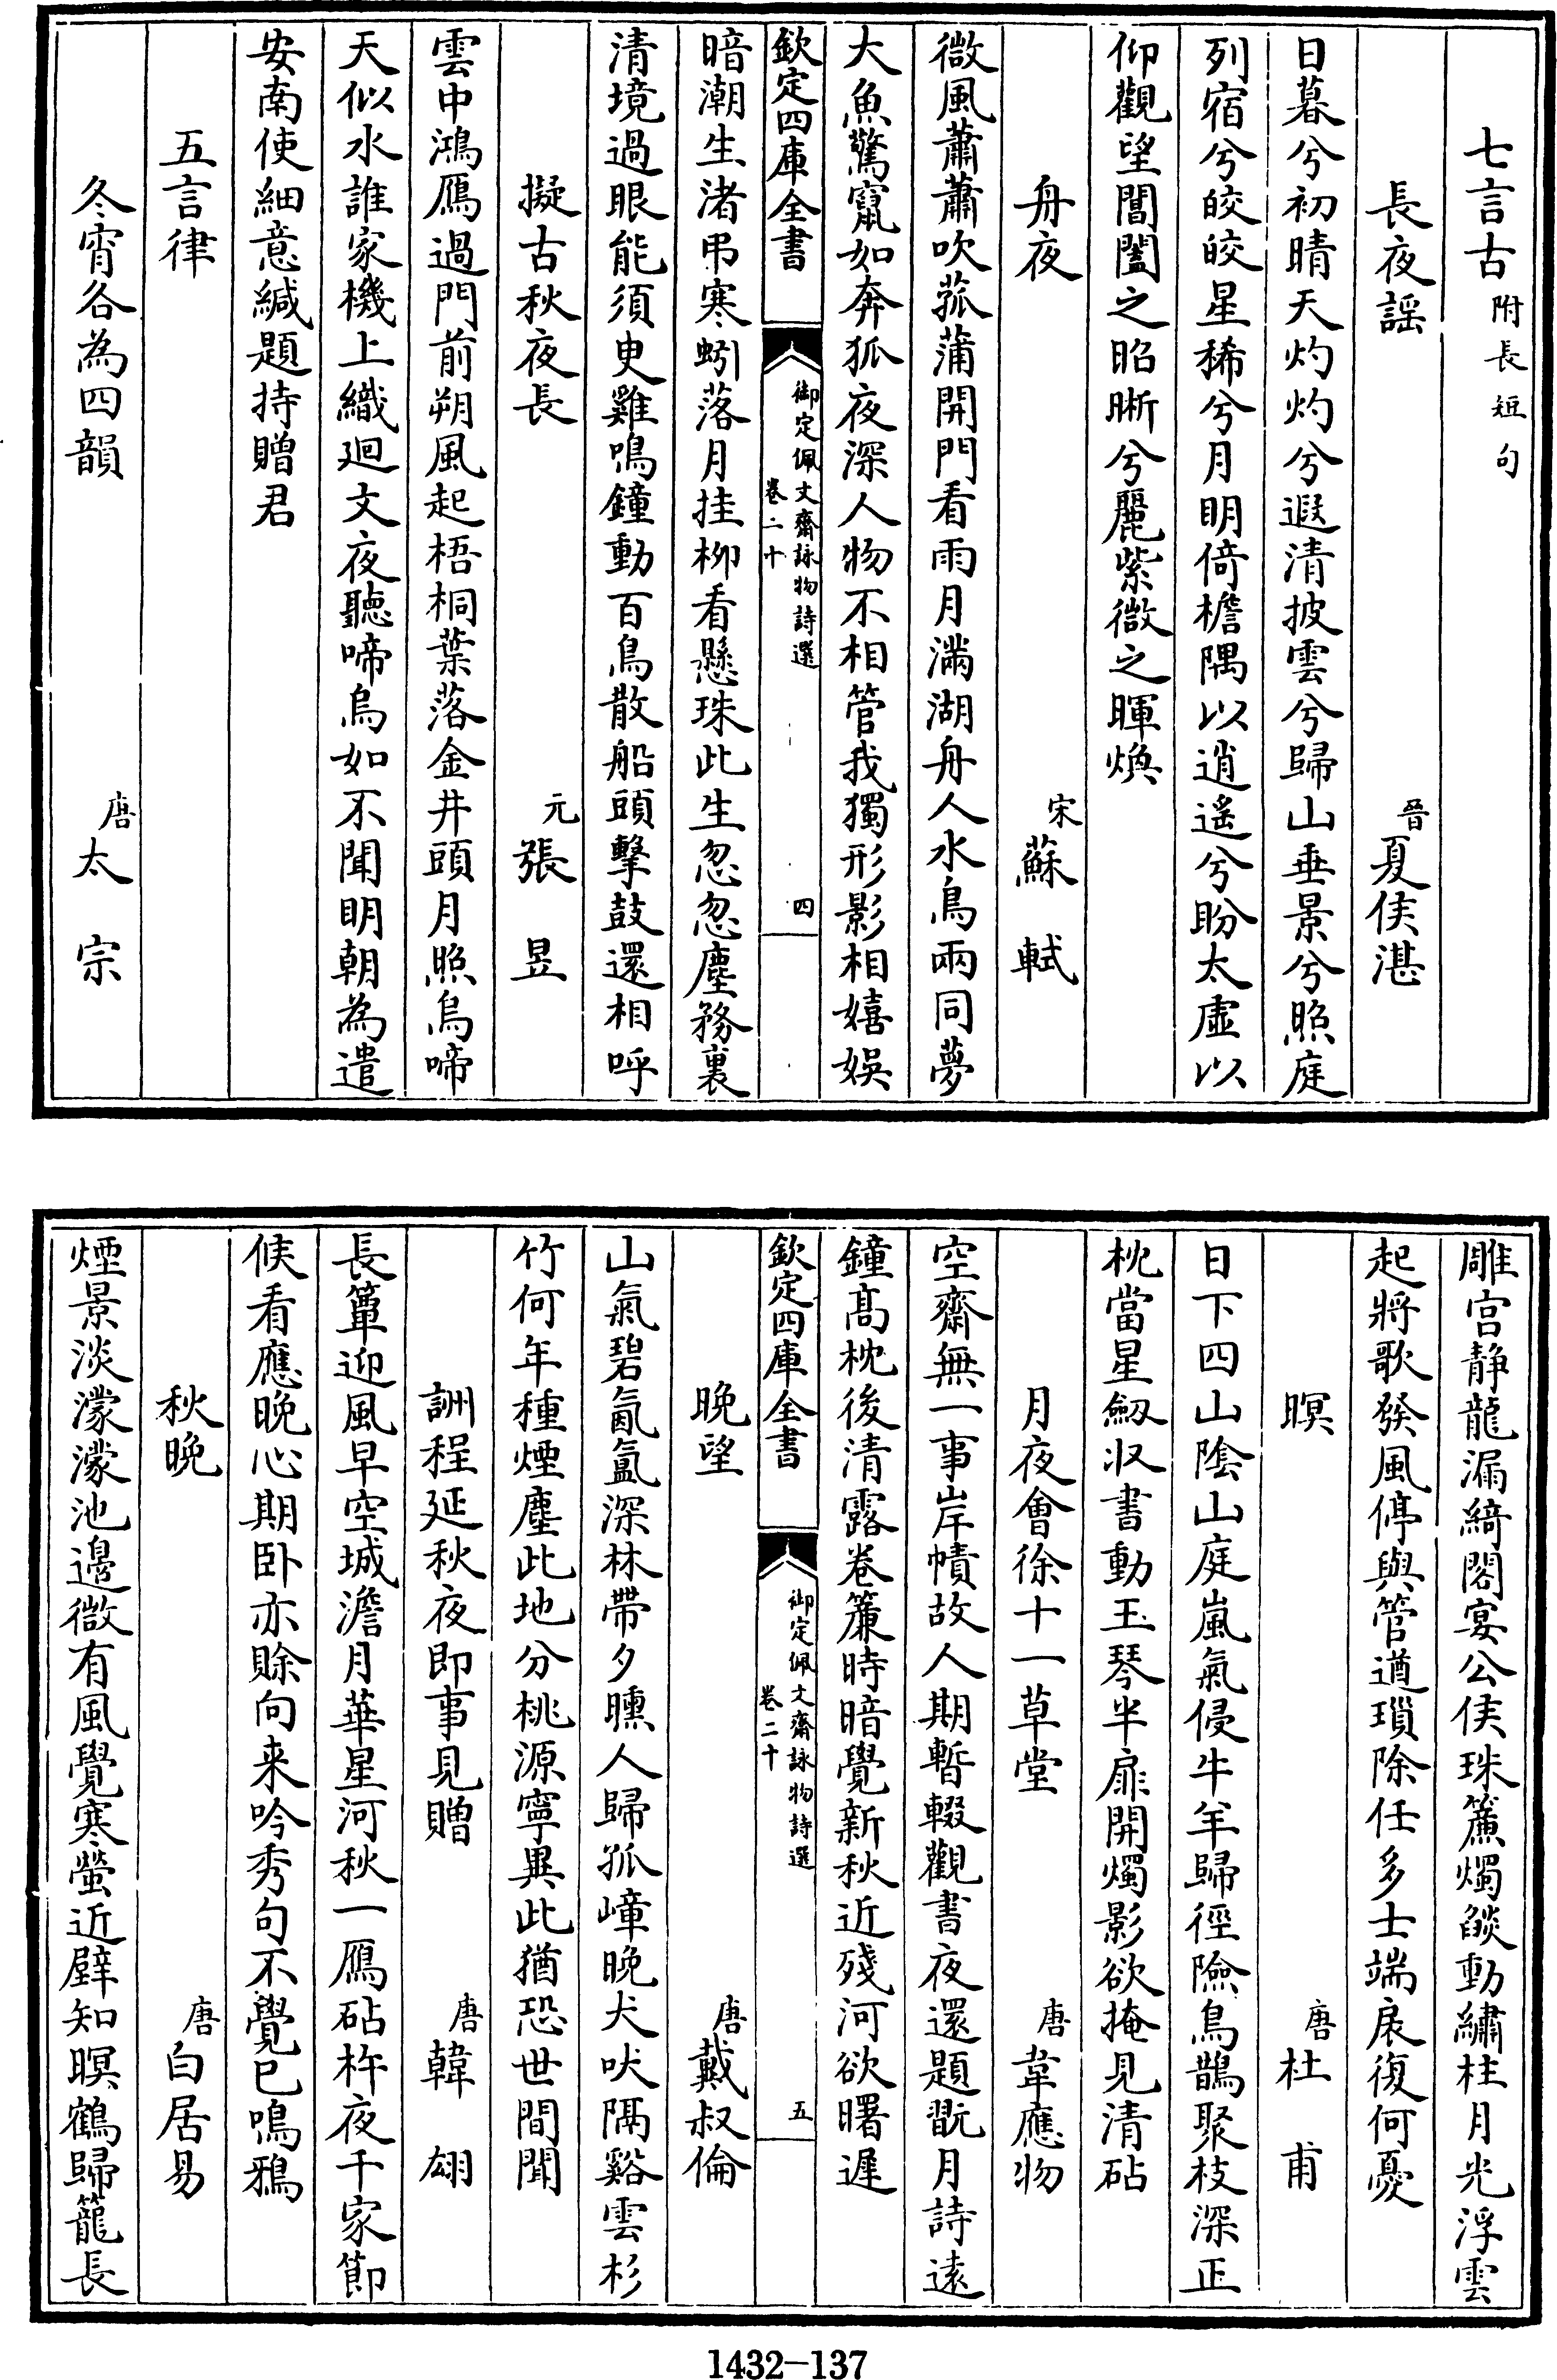 七言古附長短句
長夜謡 晉夏侯湛
日暮兮初晴天灼灼兮遐清披雲兮歸山垂景兮照庭
列宿兮皎皎星稀兮月明倚檐隅以逍遙兮盼太虛以
仰觀望閶闔之昭晰兮麗紫微之暉煥
舟夜 宋蘇軾
微風蕭蕭吹菰蒲開門看雨月滿湖舟人水鳥兩同夢
大魚驚竄如奔狐夜深人物不相管我獨形影相嬉娛
欽定四庫全書 御定佩文齋詠物詩選 卷二十 四
暗潮生渚弔寒蚓落月挂柳看懸珠此生忽忽塵務裏
清境過眼能須臾雞鳴鐘動百鳥散船頭擊鼓還相呼
擬古秋夜長 元張昱
雲中鴻鴈過門前朔風起梧桐葉落金井頭月照烏啼
天似水誰家機上織廻文夜聽啼烏如不聞明朝為遣
安南使細意緘題持贈君
五言律
冬宵各為四韻 唐太宗
雕宫静龍漏綺閣宴公侯珠簾燭燄動繡柱月光浮雲
起將歌發風停與管遒瑣除任多士端扆復何憂
暝 唐杜甫
日下四山陰山庭嵐氣侵牛羊歸徑險鳥鵲聚枝深正
枕當星劒収書動玉琴半扉開燭影欲掩見清砧
月夜會徐十一草堂 唐韋應物
空齋無一事岸幘故人期暫輟觀書夜還題翫月詩遠
鐘髙枕後清露卷簾時暗覺新秋近殘河欲曙遲
欽定四庫全書 御定佩文齋詠物詩選 卷二十 五
晚望 唐戴叔倫
山氣碧氤氲深林帶夕曛人歸孤嶂晚犬吠隔谿雲杉
竹何年種煙塵此地分桃源寧異此猶恐世間聞
詶程延秋夜即事見贈 唐韓翃
長簟迎風早空城澹月華星河秋一鴈砧杵夜千家節
候看應晚心期卧亦賒向来吟秀句不覺已鳴鴉
秋晚 唐白居易
煙景淡濛濛池邊微有風覺寒螢近壁知暝鶴歸籠長
1432—137